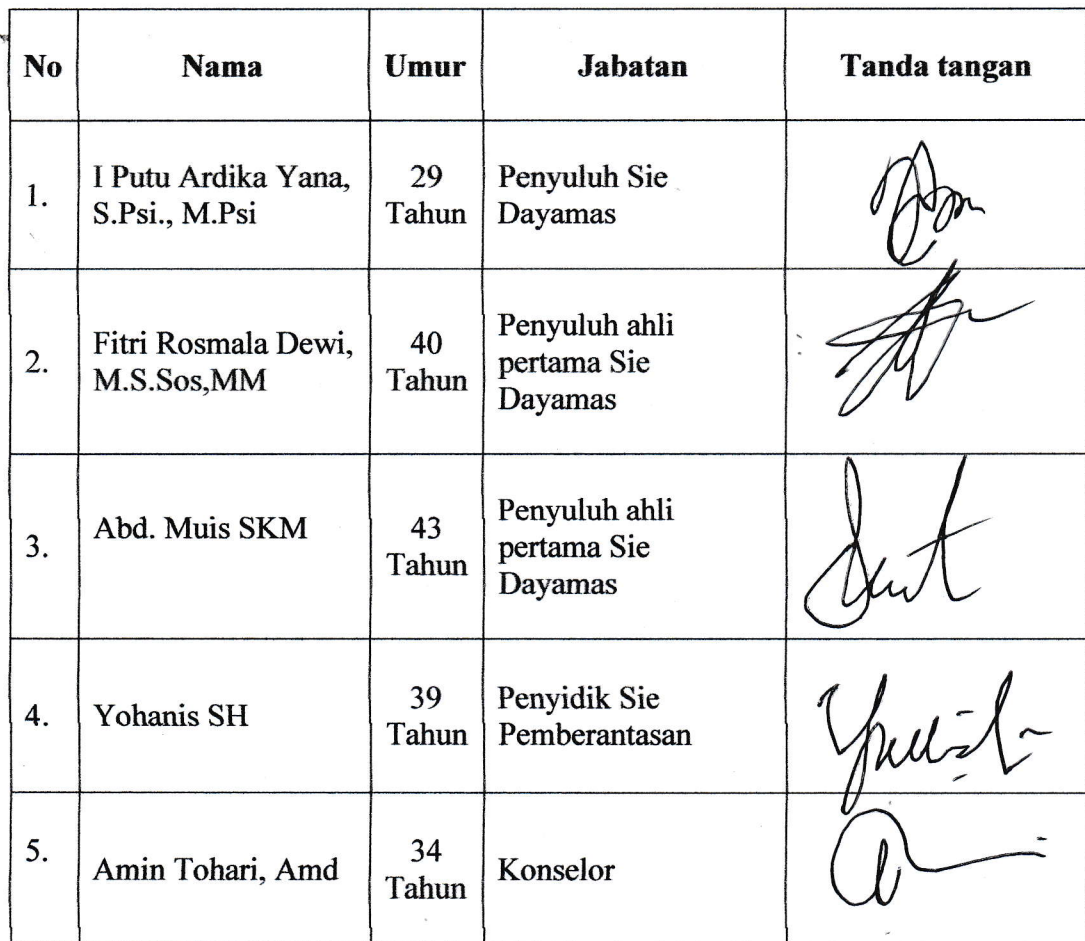 No Nama Umur Jabatan Tanda tangan
1. I Putu Ardika Yana, S.Psi., M.Psi 29 Tahun Penyuluh Sie Dayamas
2. Fitri Rosmala Dewi, M.S.Sos,MM 40 Tahun Penyuluh ahli pertama Sie Dayamas
3. Abd. Muis SKM 43 Tahun Penyuluh ahli pertama Sie Dayamas
4. Yohanis SH 39 Tahun Penyidik Sie Pemberantasan
5. Amin Tohari, Amd 34 Tahun Konselor